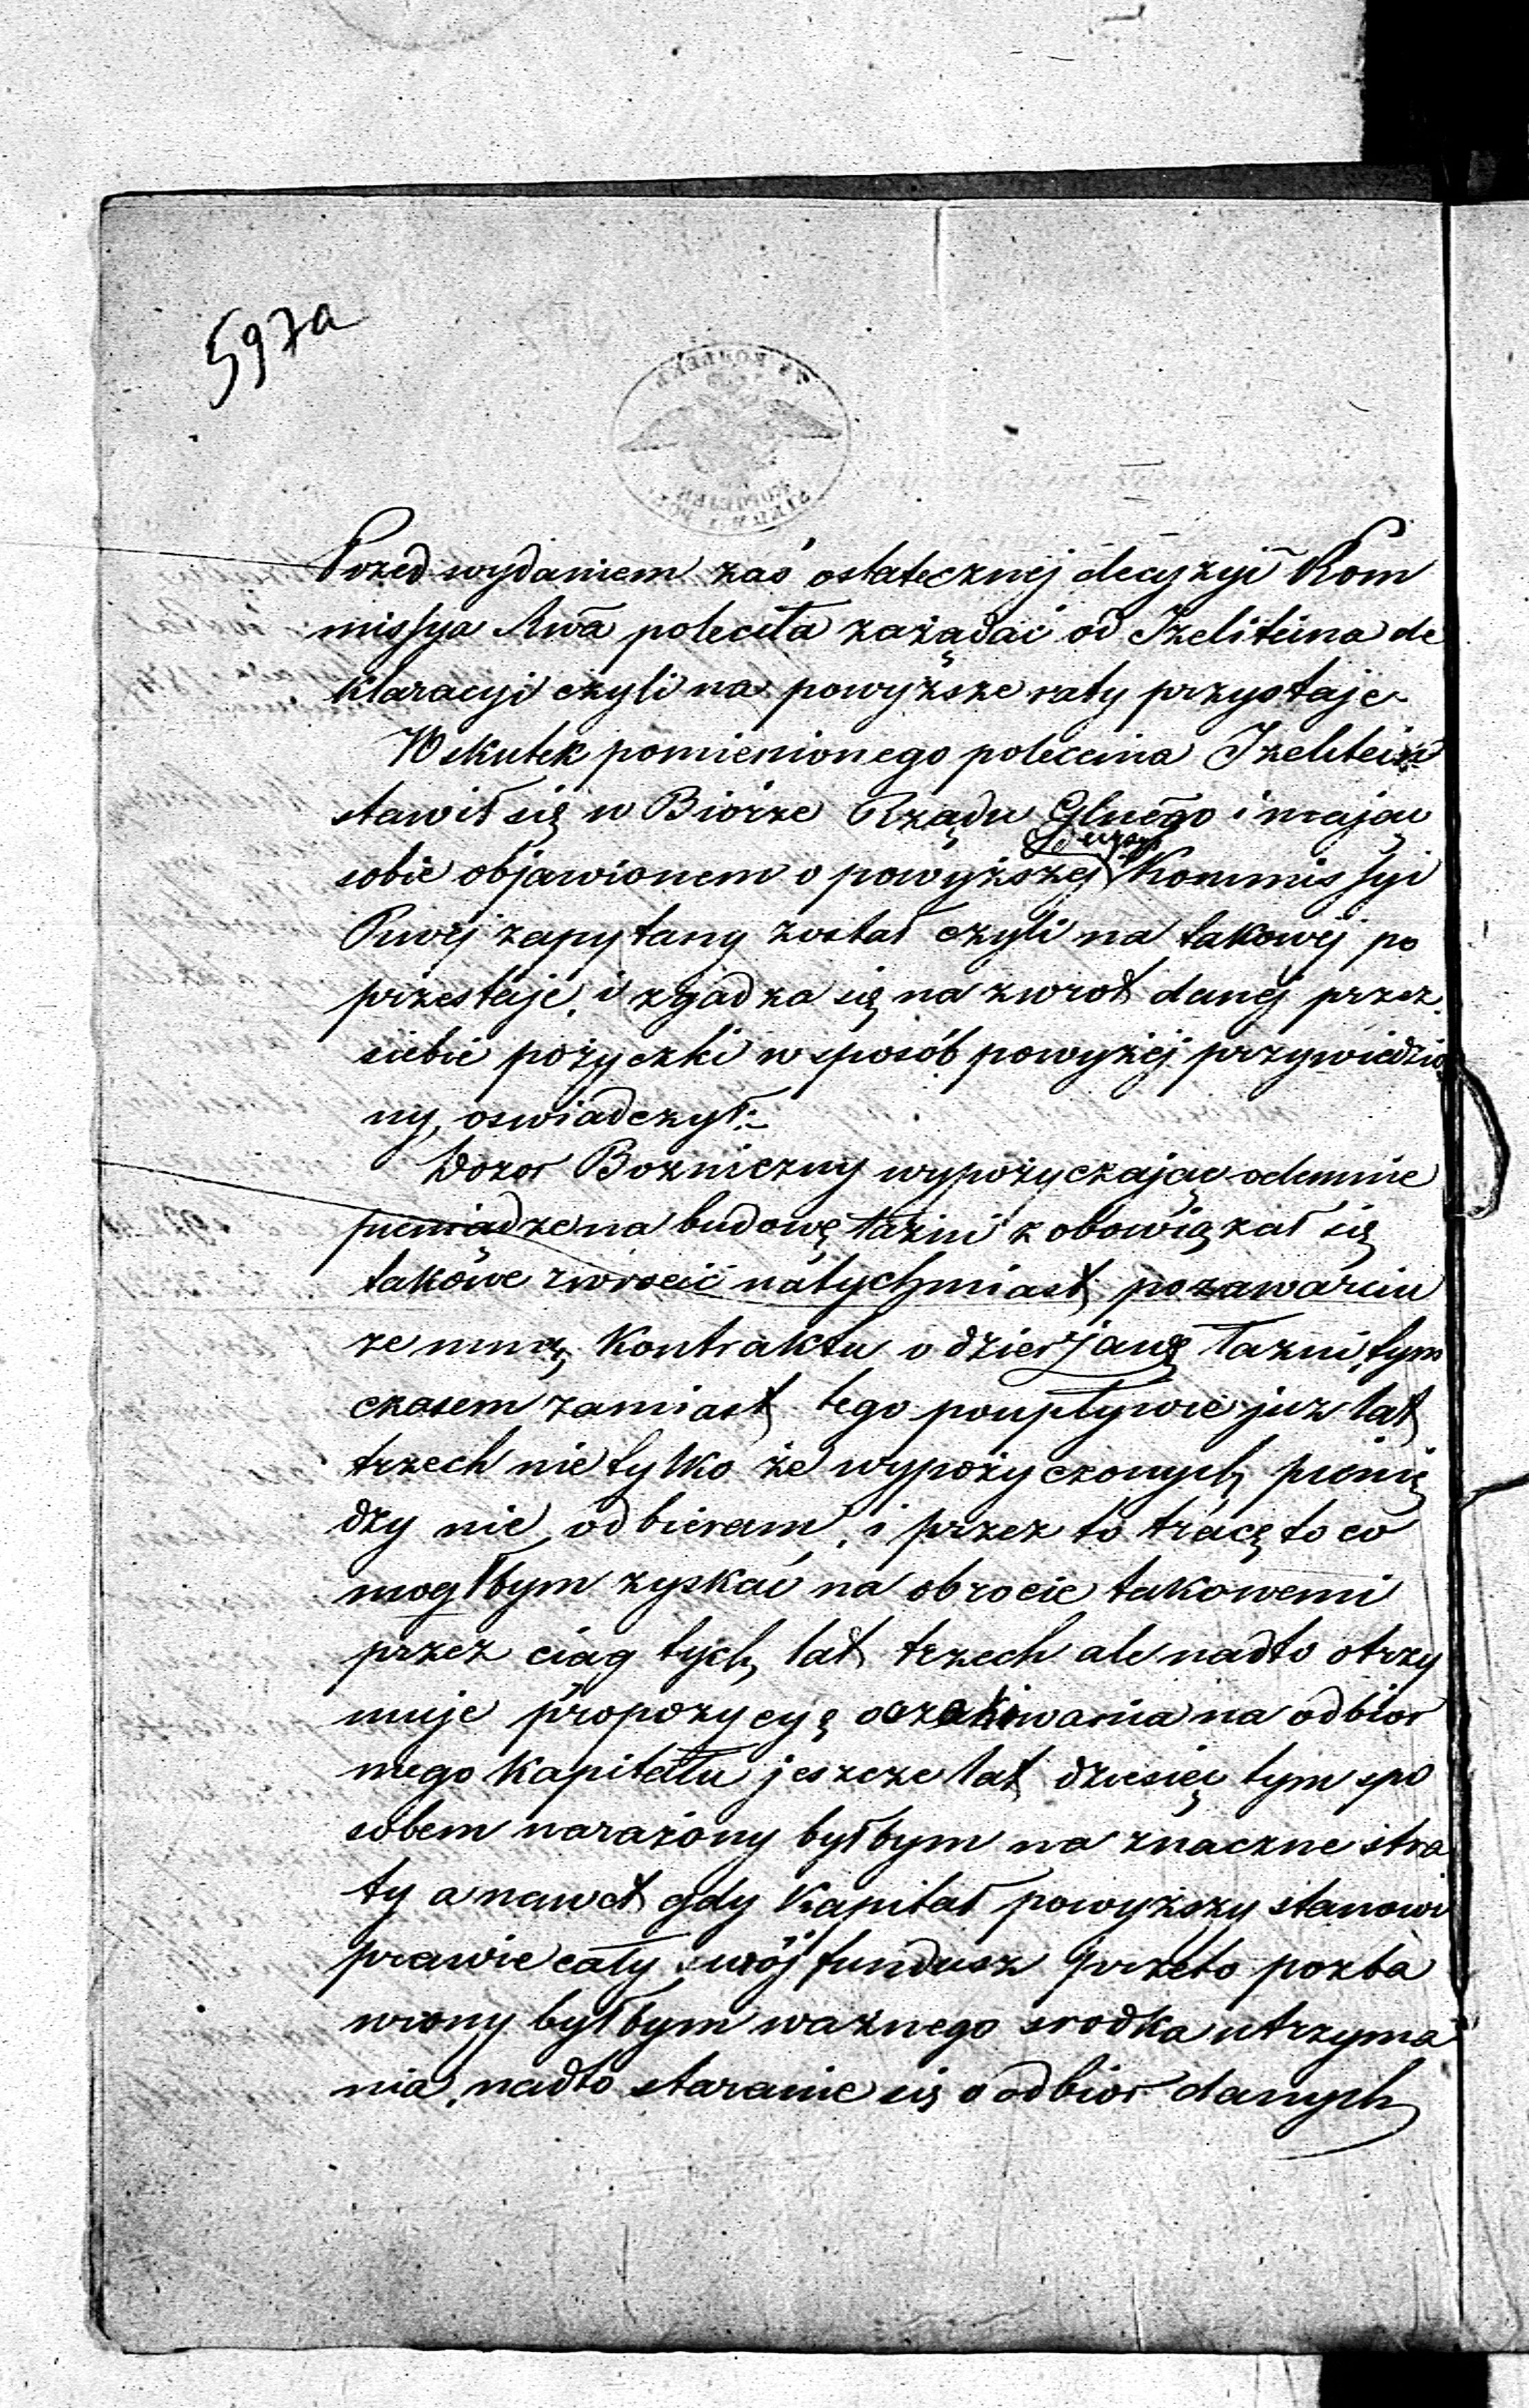 597a
Przed wydaniem zaś ostatecznej decyzyi Kom
missya Rwa poleciła zażądać od Izelsteina de
klaracyi czyli na powyższe raty przystaje
W skutek pomienionego polecenia Izelstein
stawił się w Biórze Rządu Glnego i mając
decyzyi
sobie objawionem o powyższej Kommissyi
Rwej zapytany został czyli na takowej po
przestaje, i zgadza się na zwrot danej przez
siebie pożyczki w sposób powyżej przywiedzio
ny, oswiadczył:
Dozor Bozniczny wypożyczając odemnie
pieniądze na budowę łaźni zobowiązał się
takowe zwrocić natychmiast po zawarciu
ze mną Kontraktu o dzierżawę łaźni, tym
czasem zamiast tego po upływie już lat
trzech nie tylko że wypożyczonych pienię
dzy nie odbieram, i przez to tracę to co
mogłbym zyskać na obrocie takowemi
przez ciąg tych lat trzech ale nadto otrzy
muje propozycyę oczekiwania na odbior
mego Kapitału jeszcze lat dziesięć tym spo
sobem narażony byłbym na znaczne stra
ty a nawet gdy Kapitał powyższy stanowi
prawie cały mój fundusz przeto pozba
wiony byłbym ważnego srodka utrzyma
nia, nadto staranie się o odbior danych